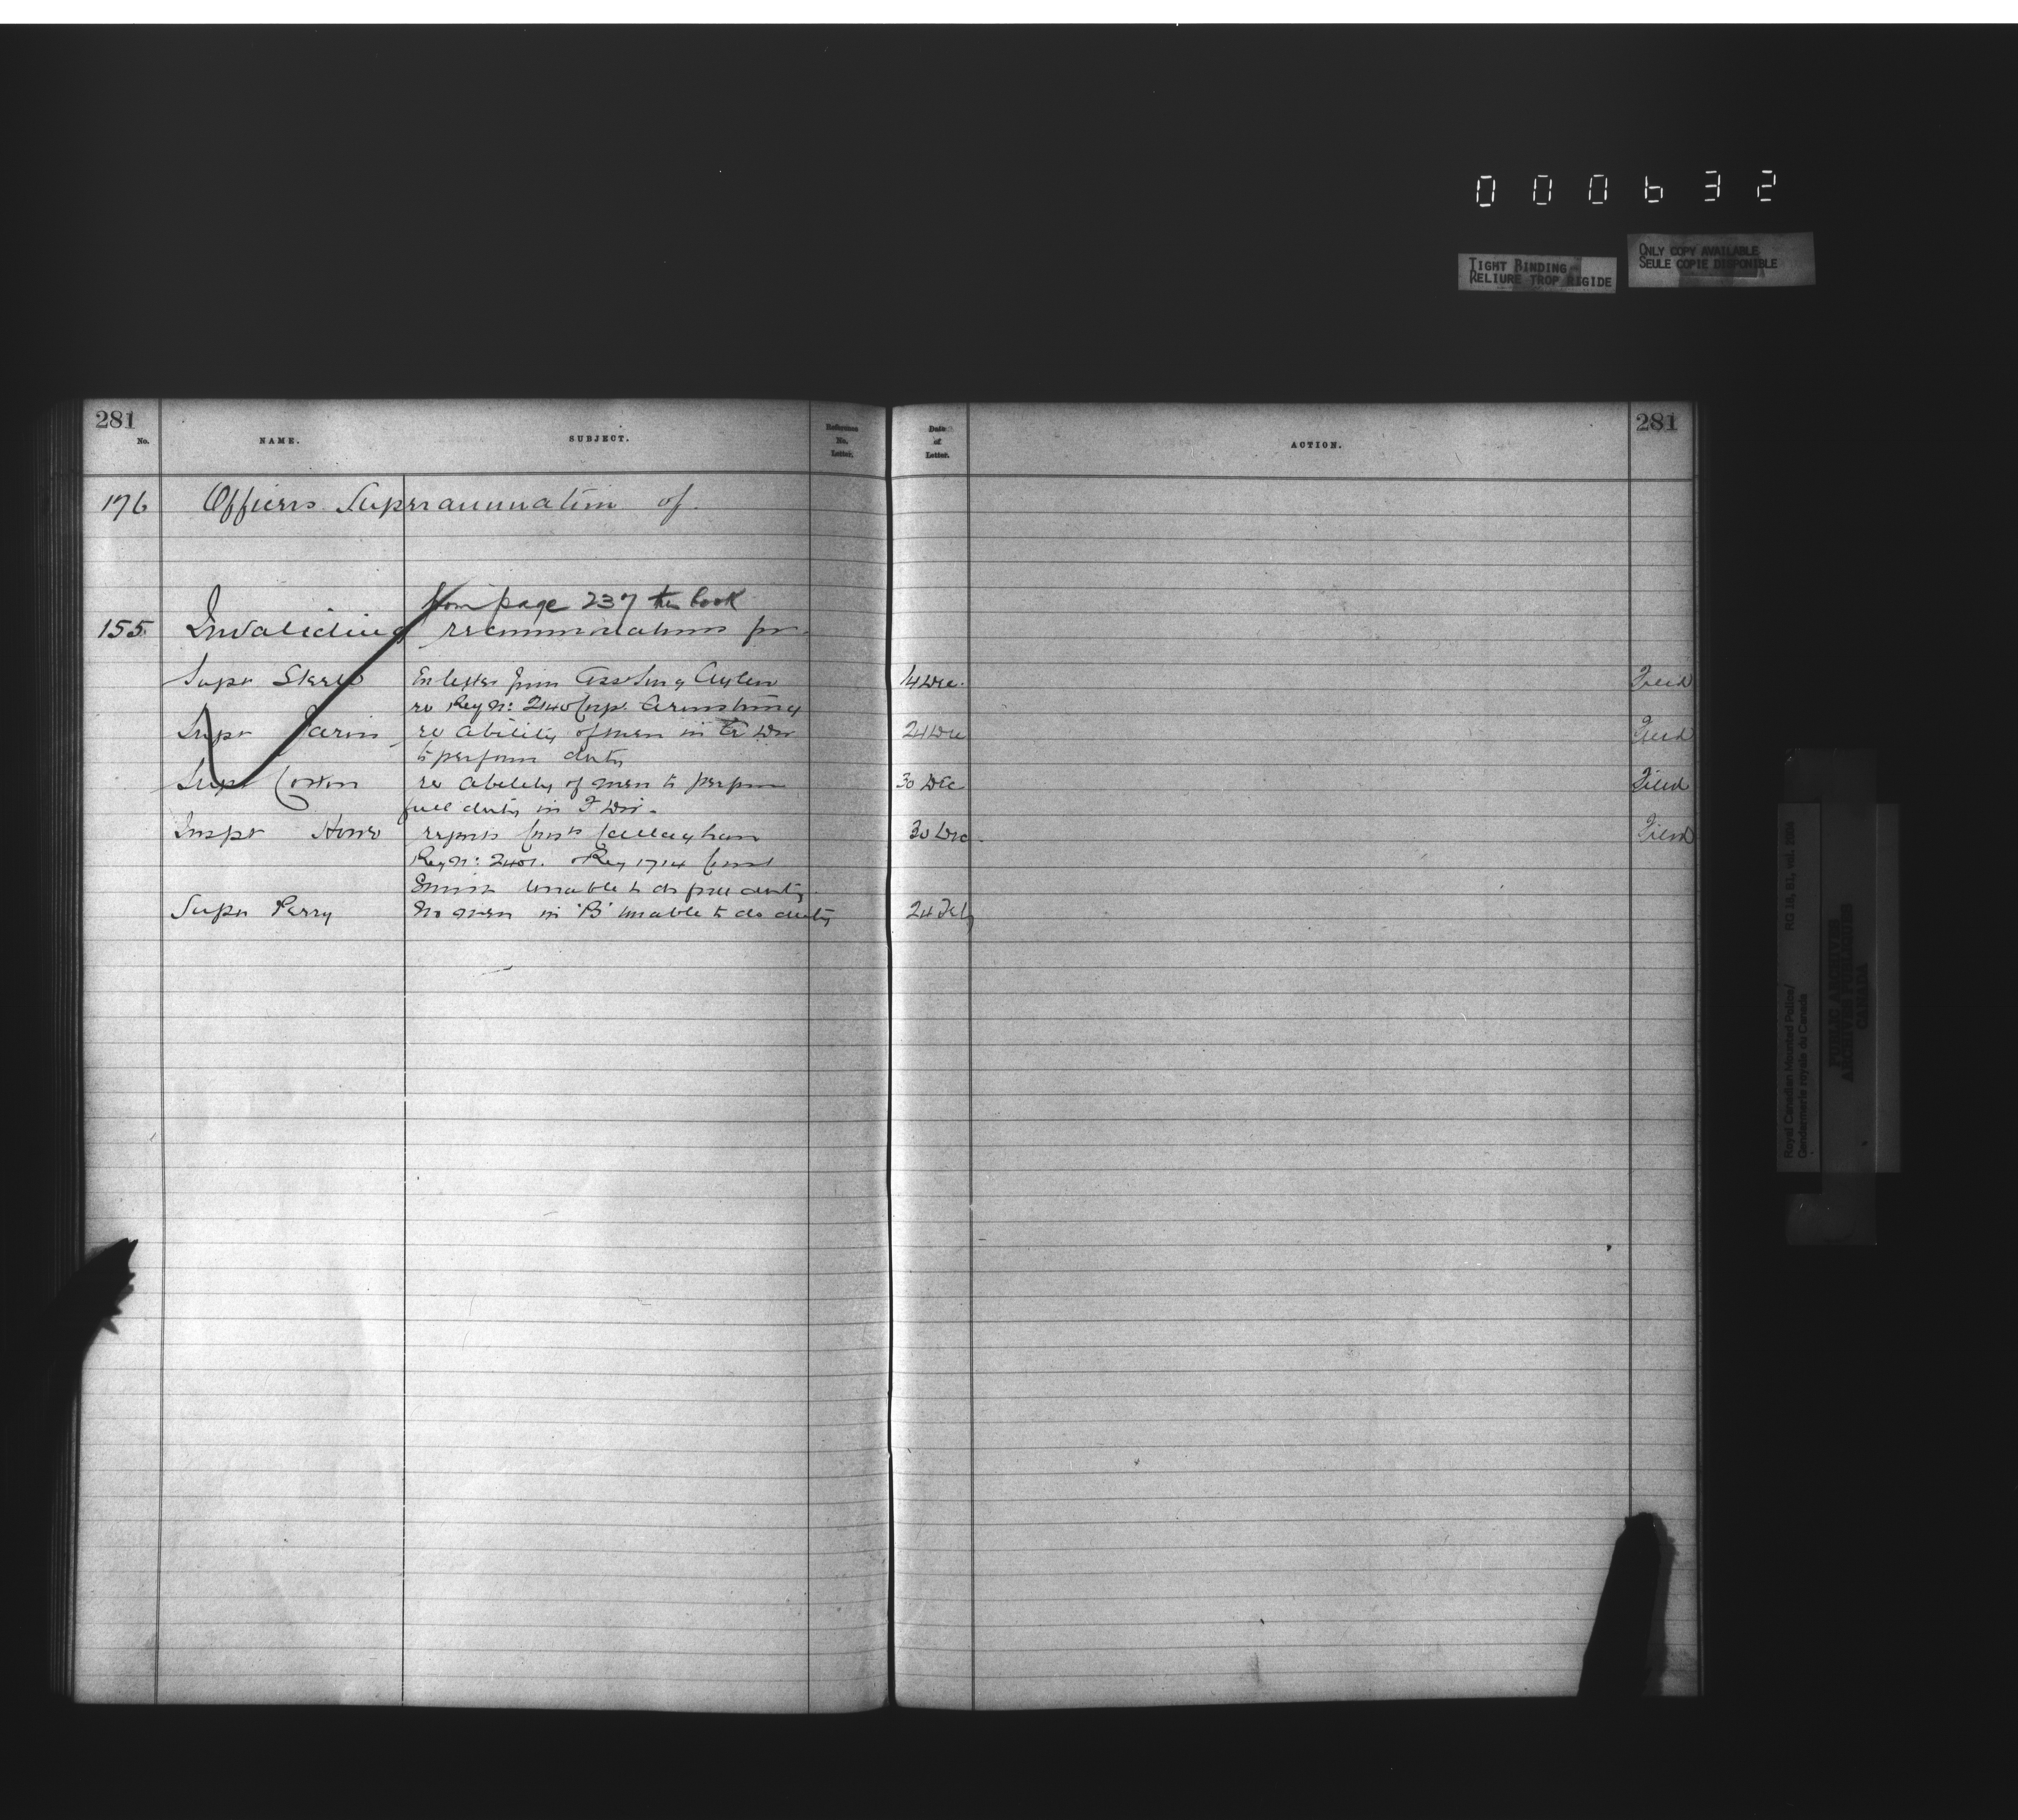 000632
TIGHT BINDING
RELIURE TROP RIGIDE
ONLY COPY AVAILABLE
SEULE COPIE DISPONIBLE
281
No.
NAME.
SUBJECT.
Reference No. Letter.
Date of Letter.
ACTION.
281
176 Officers Superannuation of.
from page 237 this book
155. Invaliding recommendations for
Supt Steele En letter from Asst Surg Aylen 14 Dec. Filed
re Reg No: 2140 Corp. Armstrong
Supt Jarvis re ability of men in Div 24 Dec Filed
to perform duty
Supt Cotton re ability of men to perform 30 Dec Filed
full duty in F Div.
Inspr Howe reports Const Callaghan 30 Dec. Filed
Reg No: 2401. & Reg 1714 Const
unable to do full duty
Supt Perry No men in 'B' unable to do duty 24 Feb
Royal Canadian Mounted Police/
Gendarmerie royale du Canada
RG 18, B1, vol.
PUBLIC ARCHIVES
ARCHIVES PUBLIQUES
CANADA